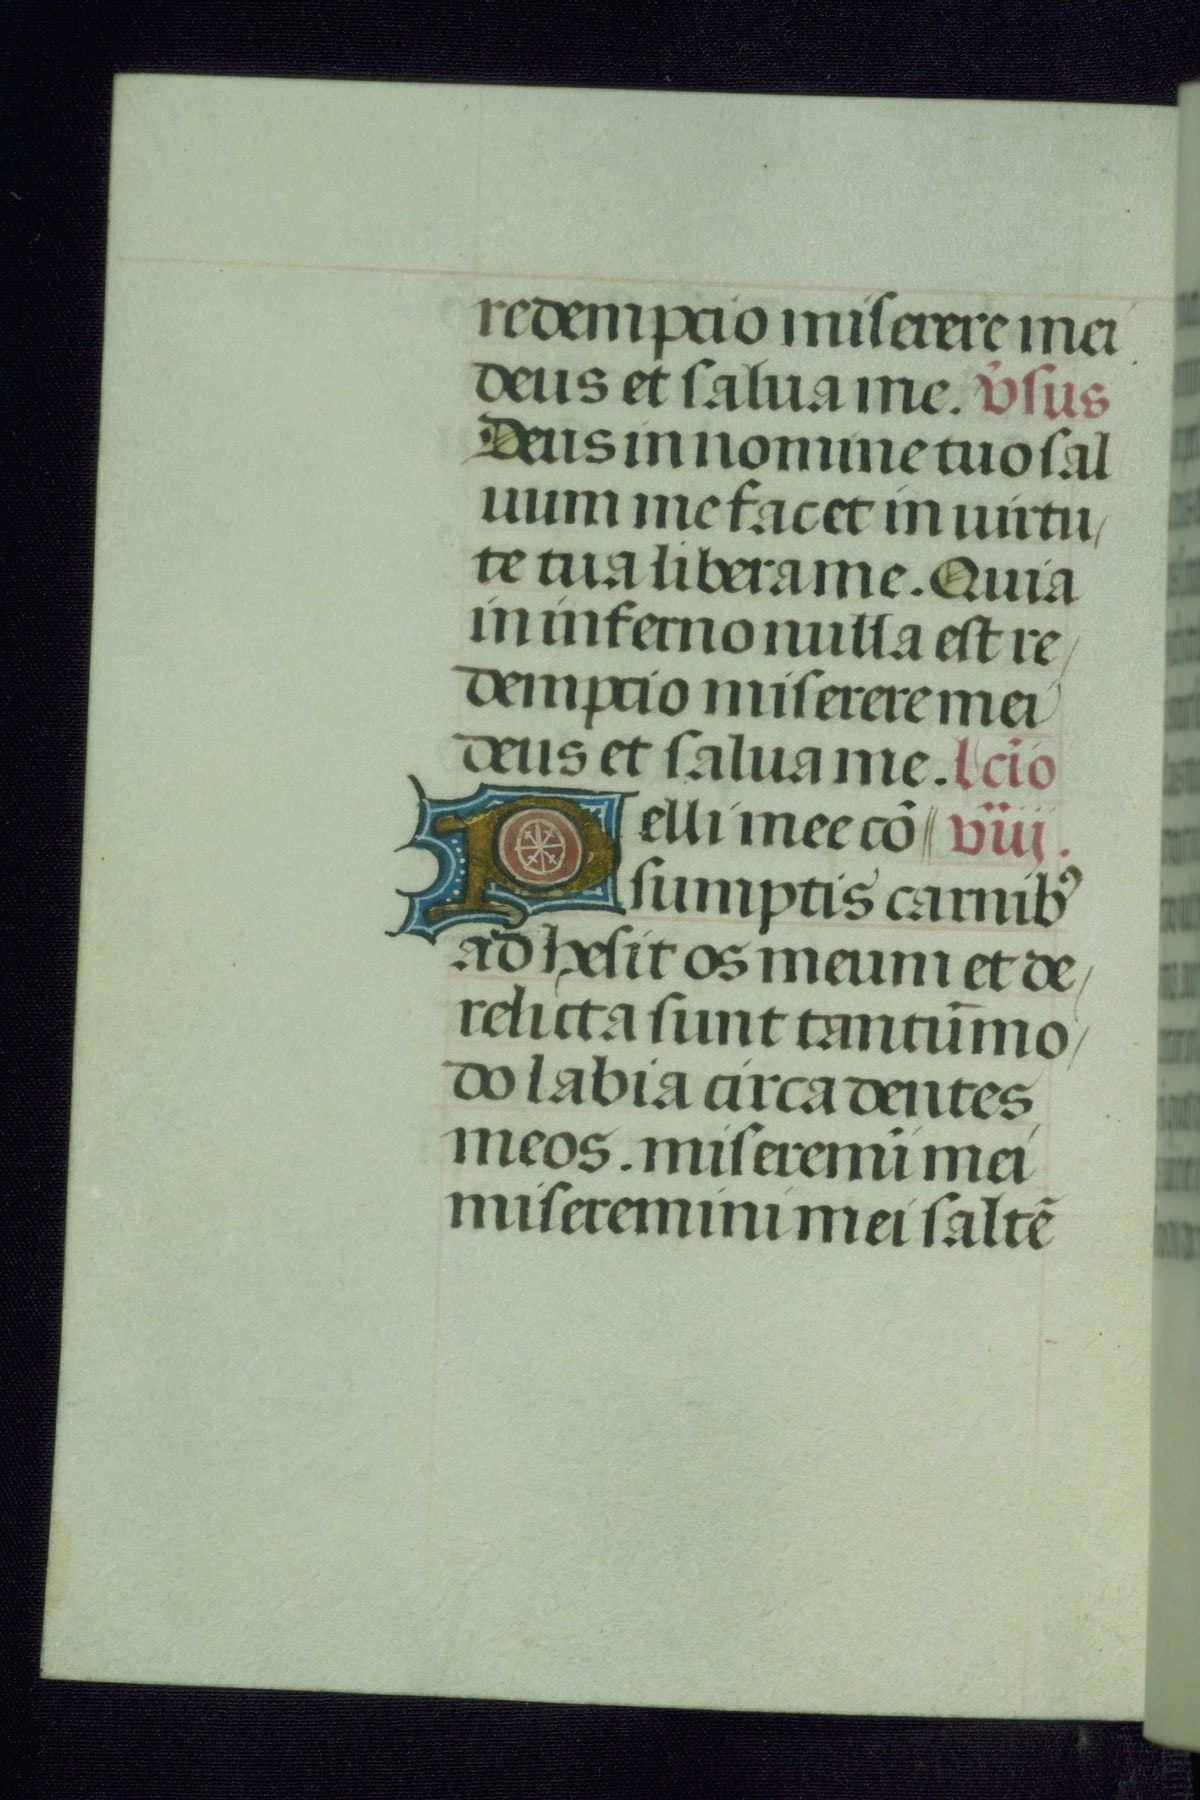 redempcio miserere mei
deus et salua me. v̄sus
Deus in nomine tuo sal
uum me fac et in uirtu/
te tua libera me. Quia
in inferno nulla est re/
dempcio miserere mei
deus et salua me. lc̄io
Pelli mee cō// viij.
sumptis carnibꝯ
adhesit os meum et de/
relicta sunt tantūmo/
do labia circa dentes
meos. miseremī mei
miseremini mei saltē